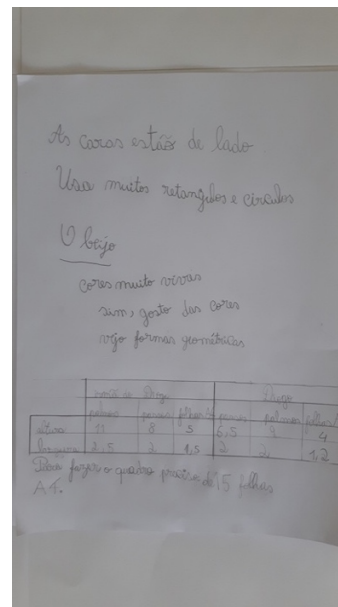 As caras estão de lado
Usa muitos retangulos e circulos
O beijo
cores muito vivas
sim, gosto das cores
vejo formas geométricas
Diogo Diogo
palmos folhas/ palmos folhas/
altura 11 8 5 6,5 9 4
largura 2,5 2 1,5 2 2 1,2
Para fazer o quadro preciso de 15 folhas
A4.